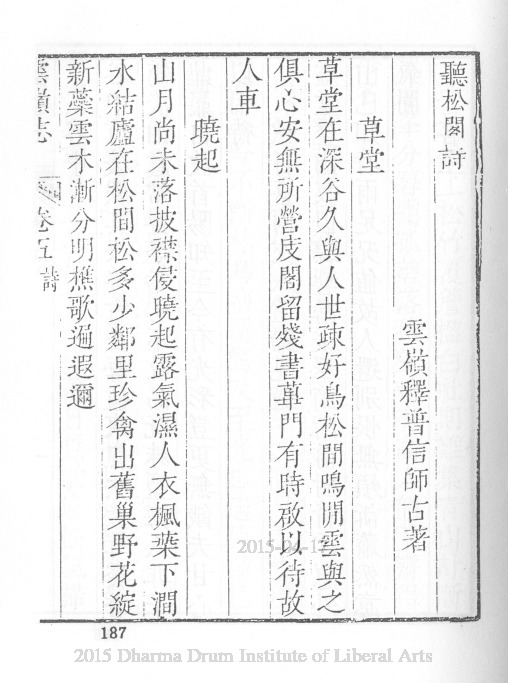 聽松閣詩
雲嶺釋普信師古著
草堂
草堂在深谷久與人世疎好鳥松間鳴閒雲與之
俱心安無所營庋閣留殘書蓽門有時啟以待故
人車
曉起
山月尚未落披襟侵曉起露氣濕人衣楓葉下澗
水結廬在松間松多少鄰里珍禽出舊巢野花綻
新蘂雲木漸分明樵歌遍遐邇
雲嶺志
卷五
詩
187
2015 Dharma Drum Institute of Liberal Arts